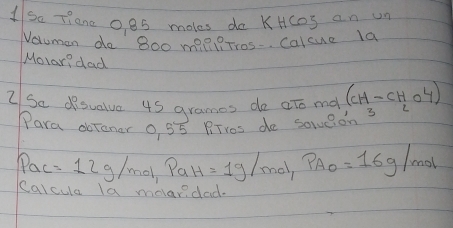 1 Se Tiene 0,85 moles de KHCO3 en un
Volumen de 800 mililiTros.. Calcule la
Molaridad
2 Se disuelve 45 gramos de (CH3-CH2OH)
Para obTener 0,55 liTros de solución
Pac= 12g/mol, PaH= 1g/mol, PAo= 16g/mol
Calcula la molaridad.